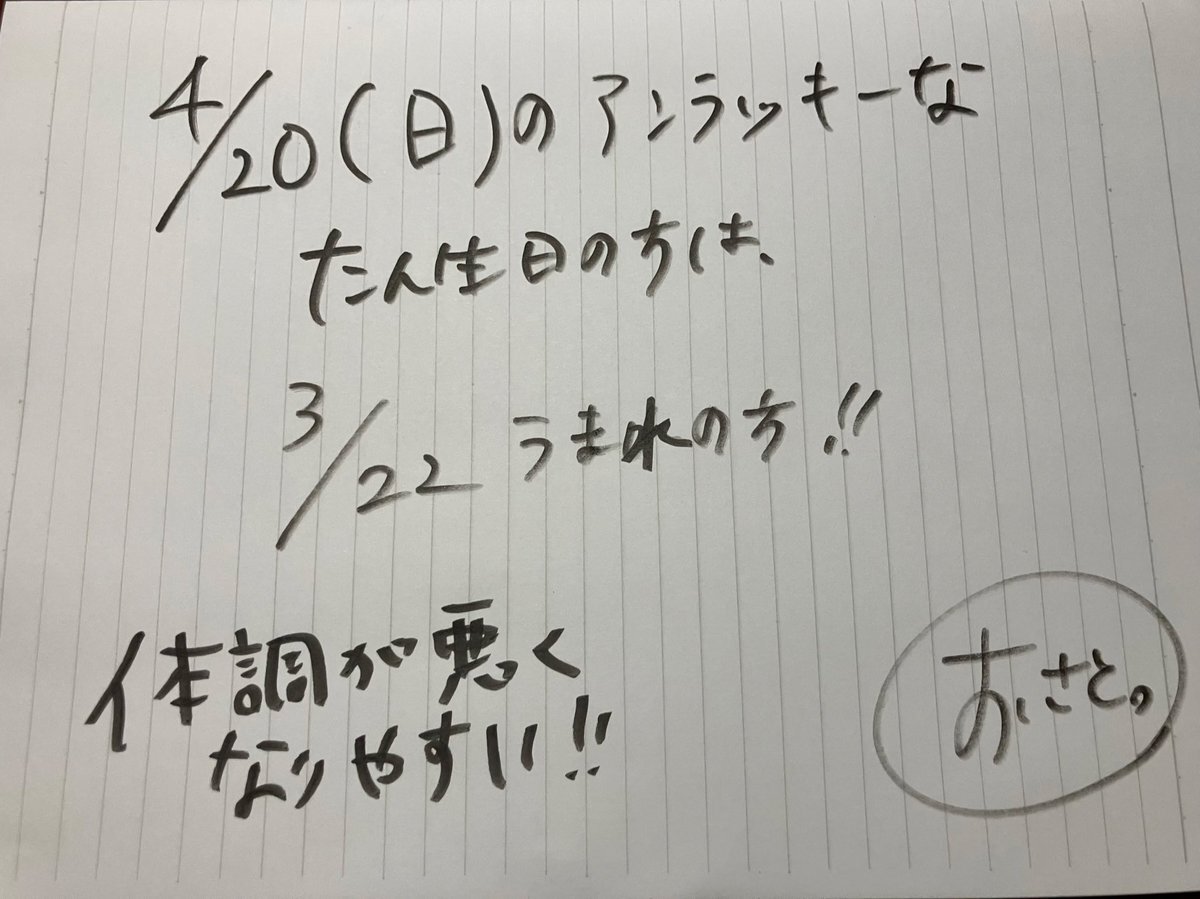 4/20(日)のアンラッキーな
たん生日の方は、
3/22 うまれの方!!
体調が悪く
なりやすい!!
おさと。